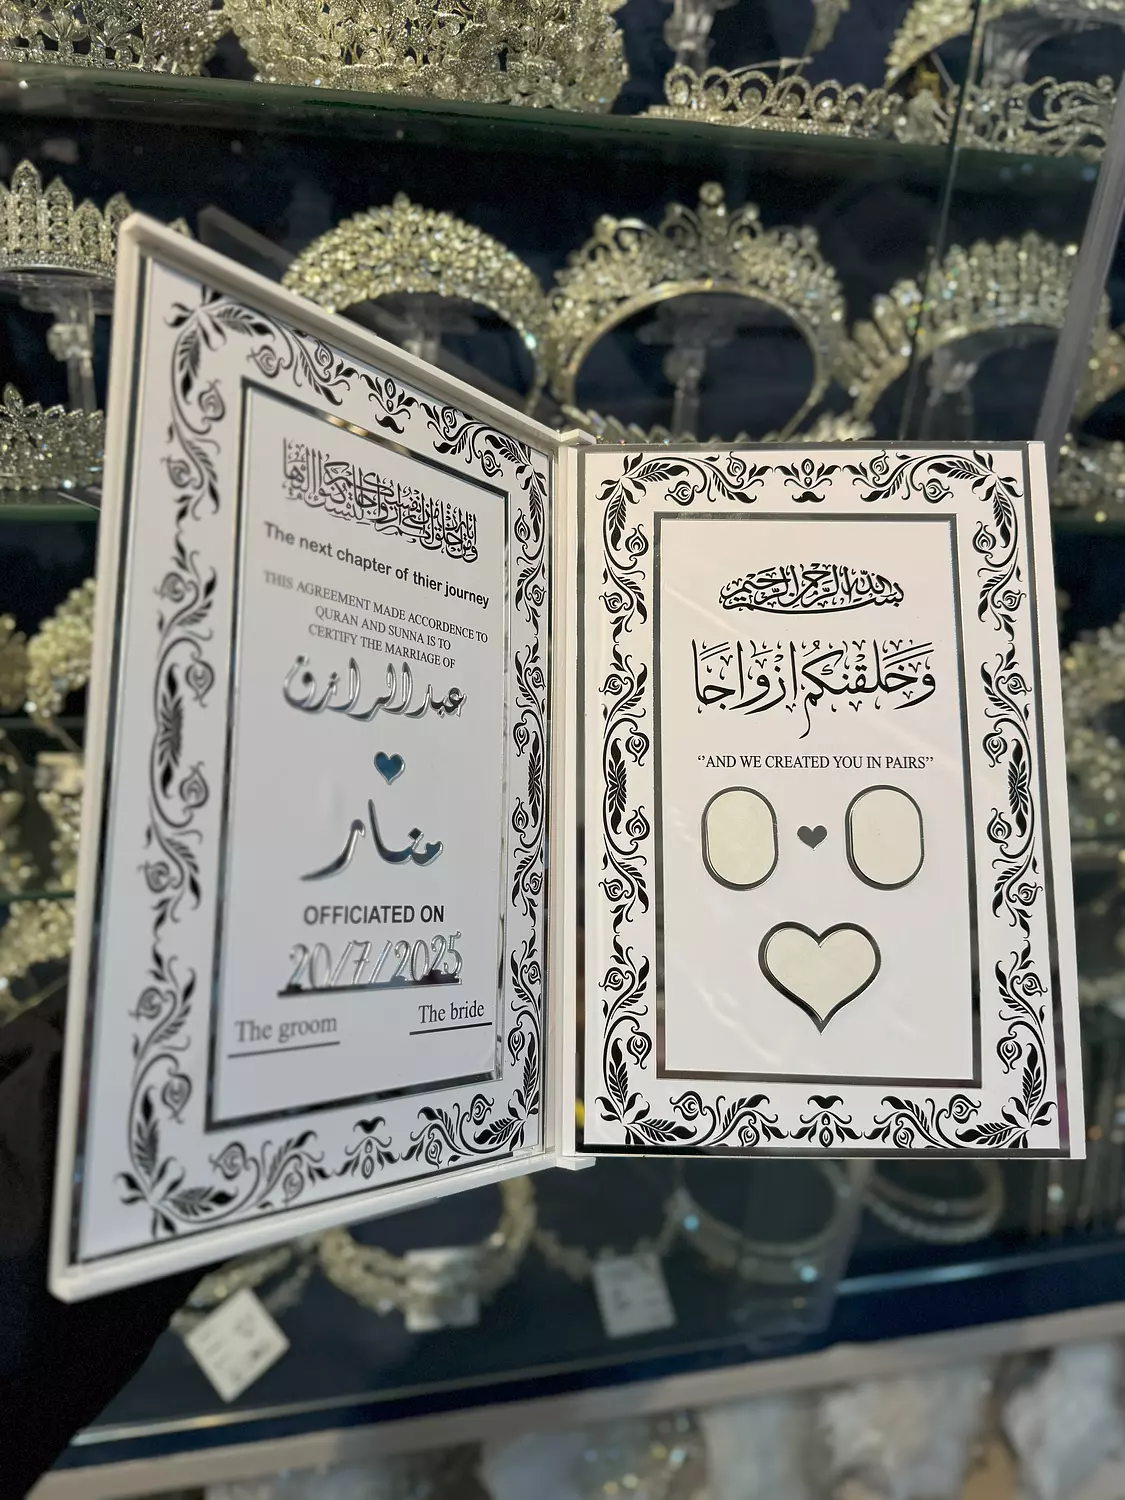 ومن آياته أن خلق لكم من أنفسكم أزواجا لتسكنوا إليها
The next chapter of thier journey
THIS AGREEMENT MADE ACCORDENCE TO
QURAN AND SUNNA IS TO
CERTIFY THE MARRIAGE OF
عبدالرازق
منار
OFFICIATED ON
20/7/2025
The groom
The bride
بسم الله الرحمن الرحيم
وَخَلَقْنَكُمْ أَزْوَاجًا
“AND WE CREATED YOU IN PAIRS”